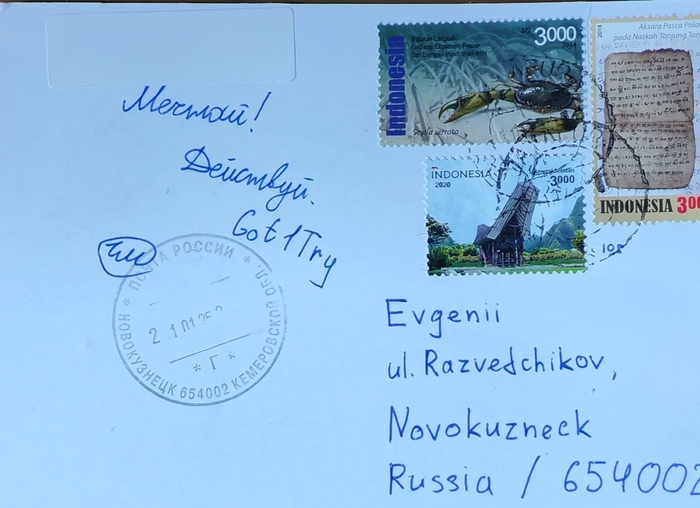 Indonesia
3000
2014
Scylla serrata
2014
Aksara Pasca Pala
pada Naskah Tanjung Tan
INDONESIA 300
INDONESIA
2020
3000
Мечтай!
Действуй.
Got 1 Try
ПОЧТА РОССИИ
2 1 01 25
Г
НОВОКУЗНЕЦК 654002 КЕМЕРОВСКОЙ ОБЛ.
Evgenii
ul. Razvedchikov,
Novokuzneck
Russia / 654002